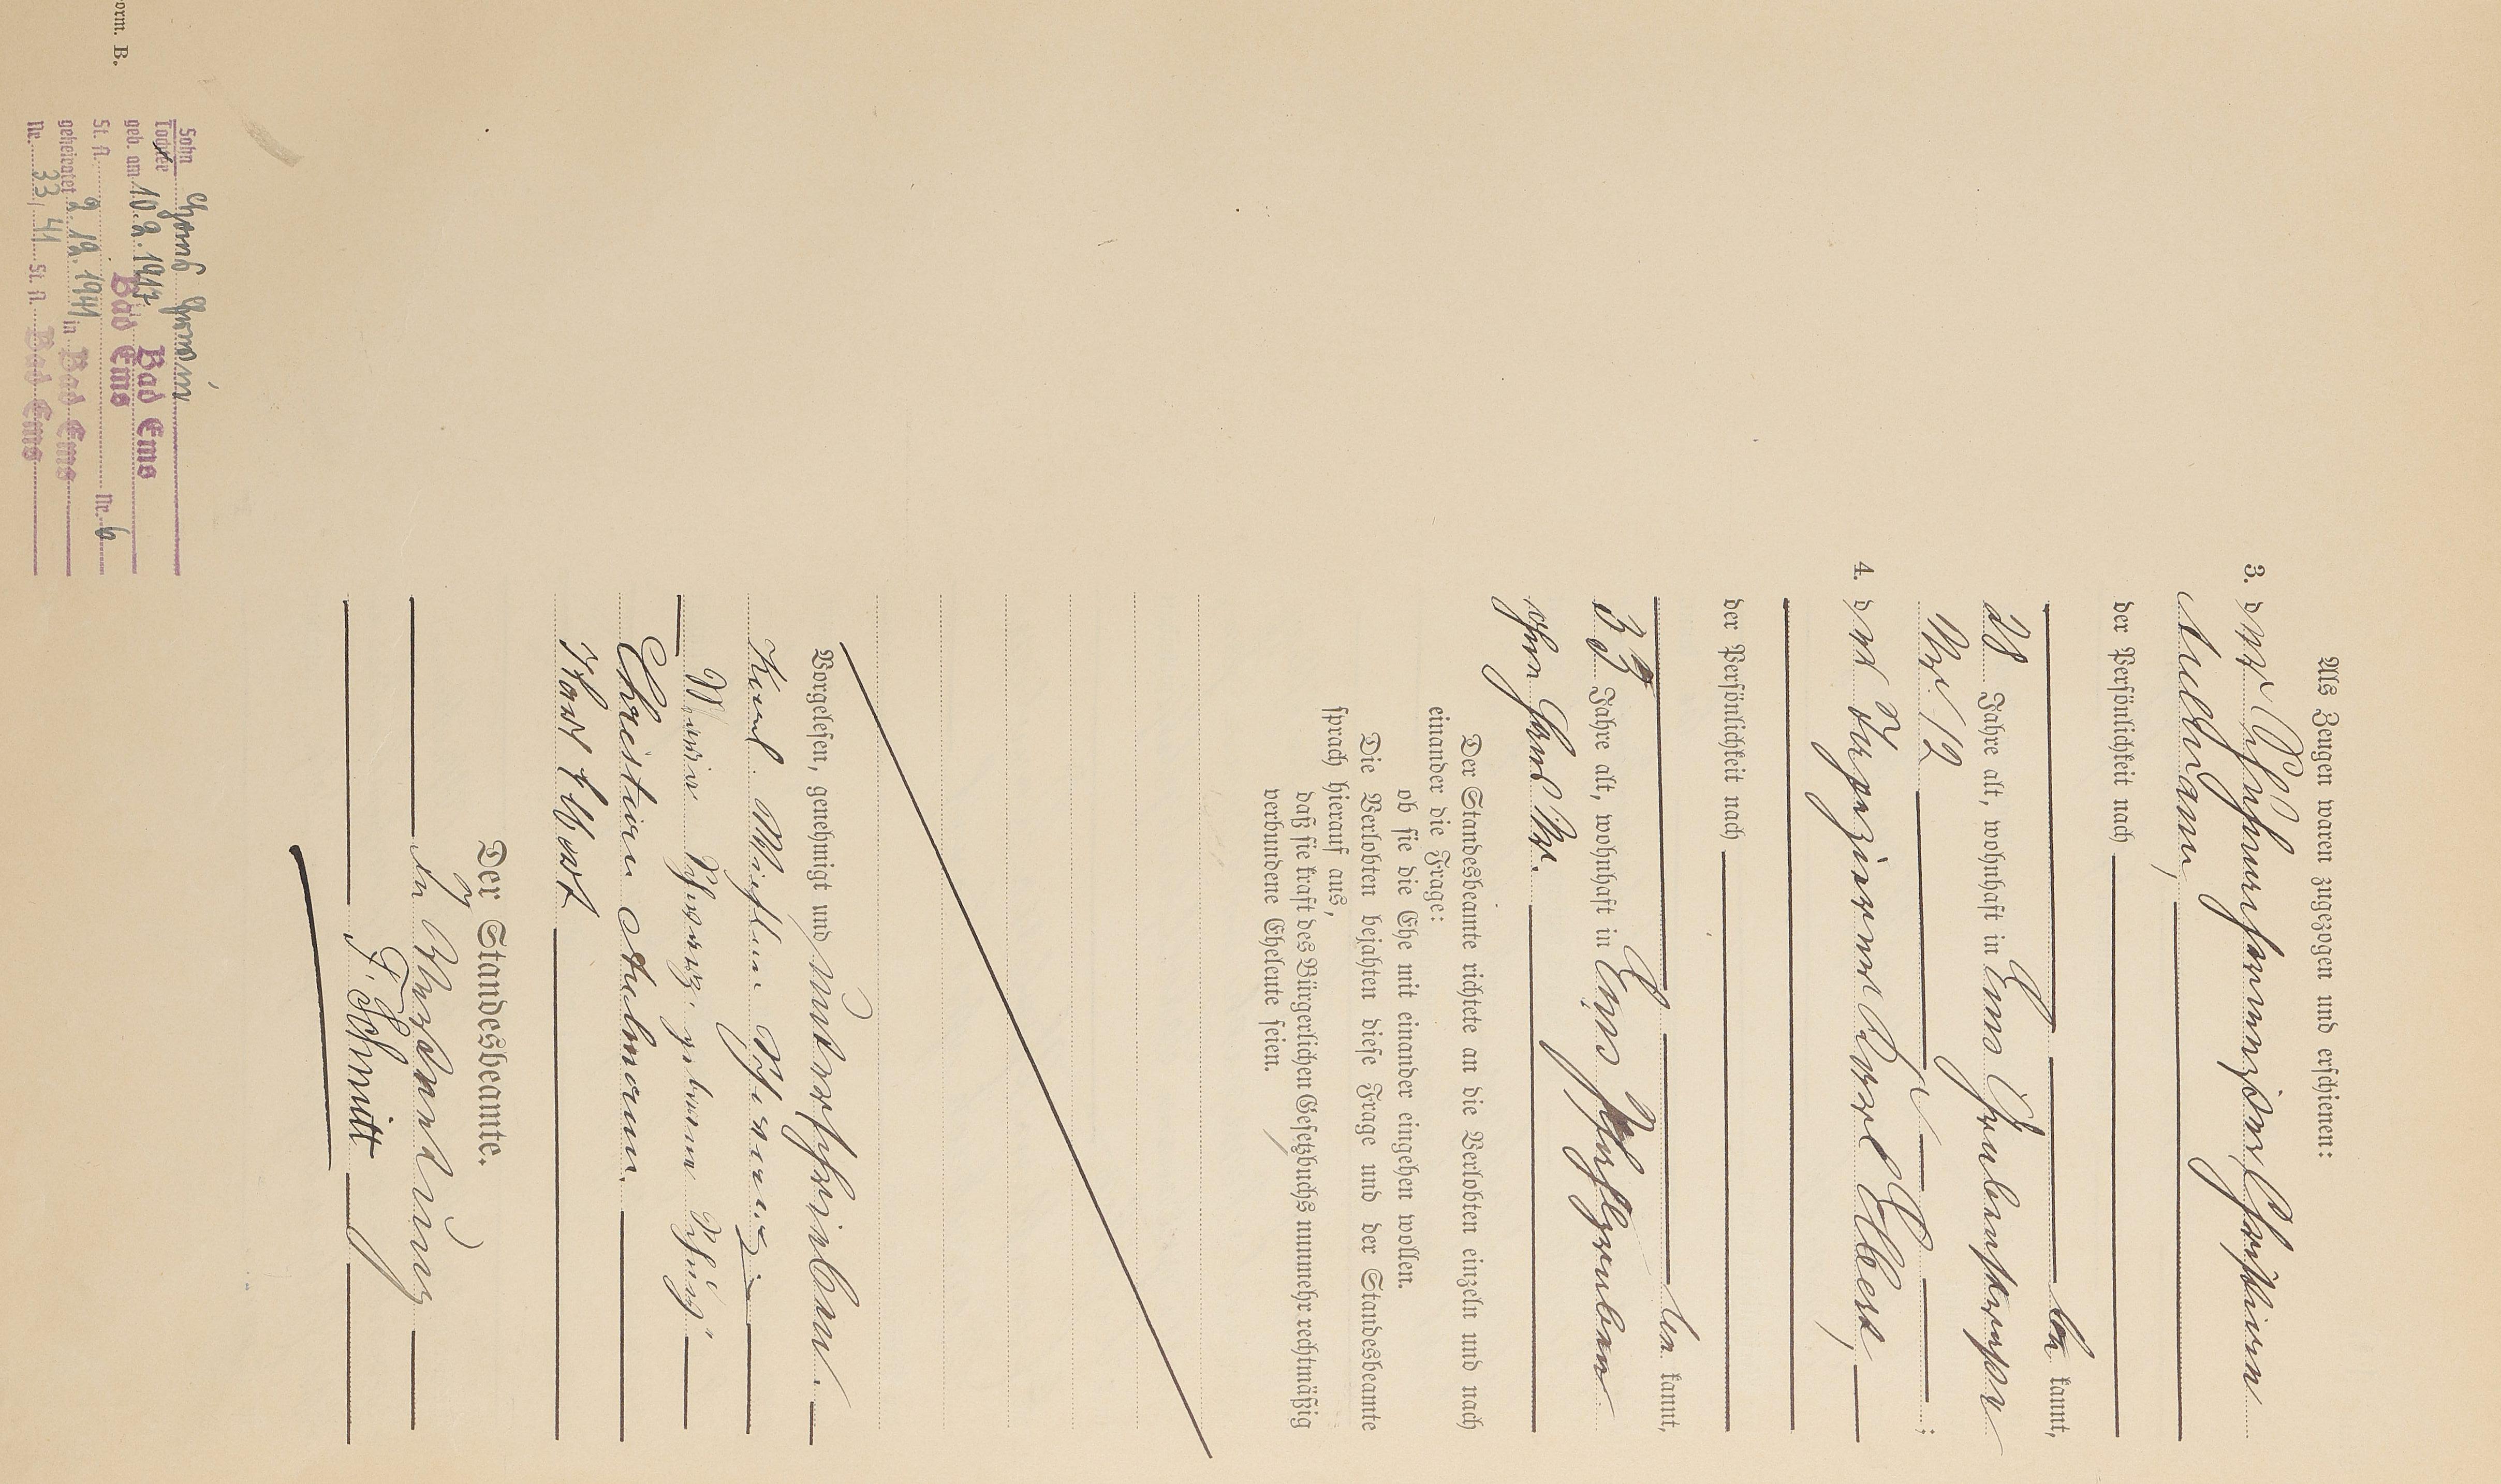 Als Zeugen waren zugezogen und erschienen:
3. d
Aulmann,
der Persönlichkeit nach
be kannt,
28 Jahre alt, wohnhaft in Ems Grabenstrasse
Nr. 12 ;
4. d er Tapezierer Karl Elbert,
der Persönlichkeit nach
be kannt,
33 Jahre alt, wohnhaft in Ems
Der Standesbeamte richtete an die Verlobten einzeln und nach
einander die Frage:
ob sie die Ehe mit einander eingehen wollen.
Die Verlobten bejahten diese Frage und der Standesbeamte
sprach hierauf aus,
daß sie kraft des Bürgerlichen Gesetzbuchs nunmehr rechtmäßig
verbundene Eheleute seien.
Vorgelesen, genehmigt und unterschrieben.
Karl
Maria geborene
Christian Aulmann.
Karl Elbert
Der Standesbeamte.
In Vertretung
F. Schmitt
orm. B.
Sohn
Tochter Erwin
geb. am 10.2.1917 Bad Ems
St. A. Bad Ems Nr. 6
geheiratet 2.12.1941 in Bad Ems
Nr. 33/41 St. A. Bad Ems